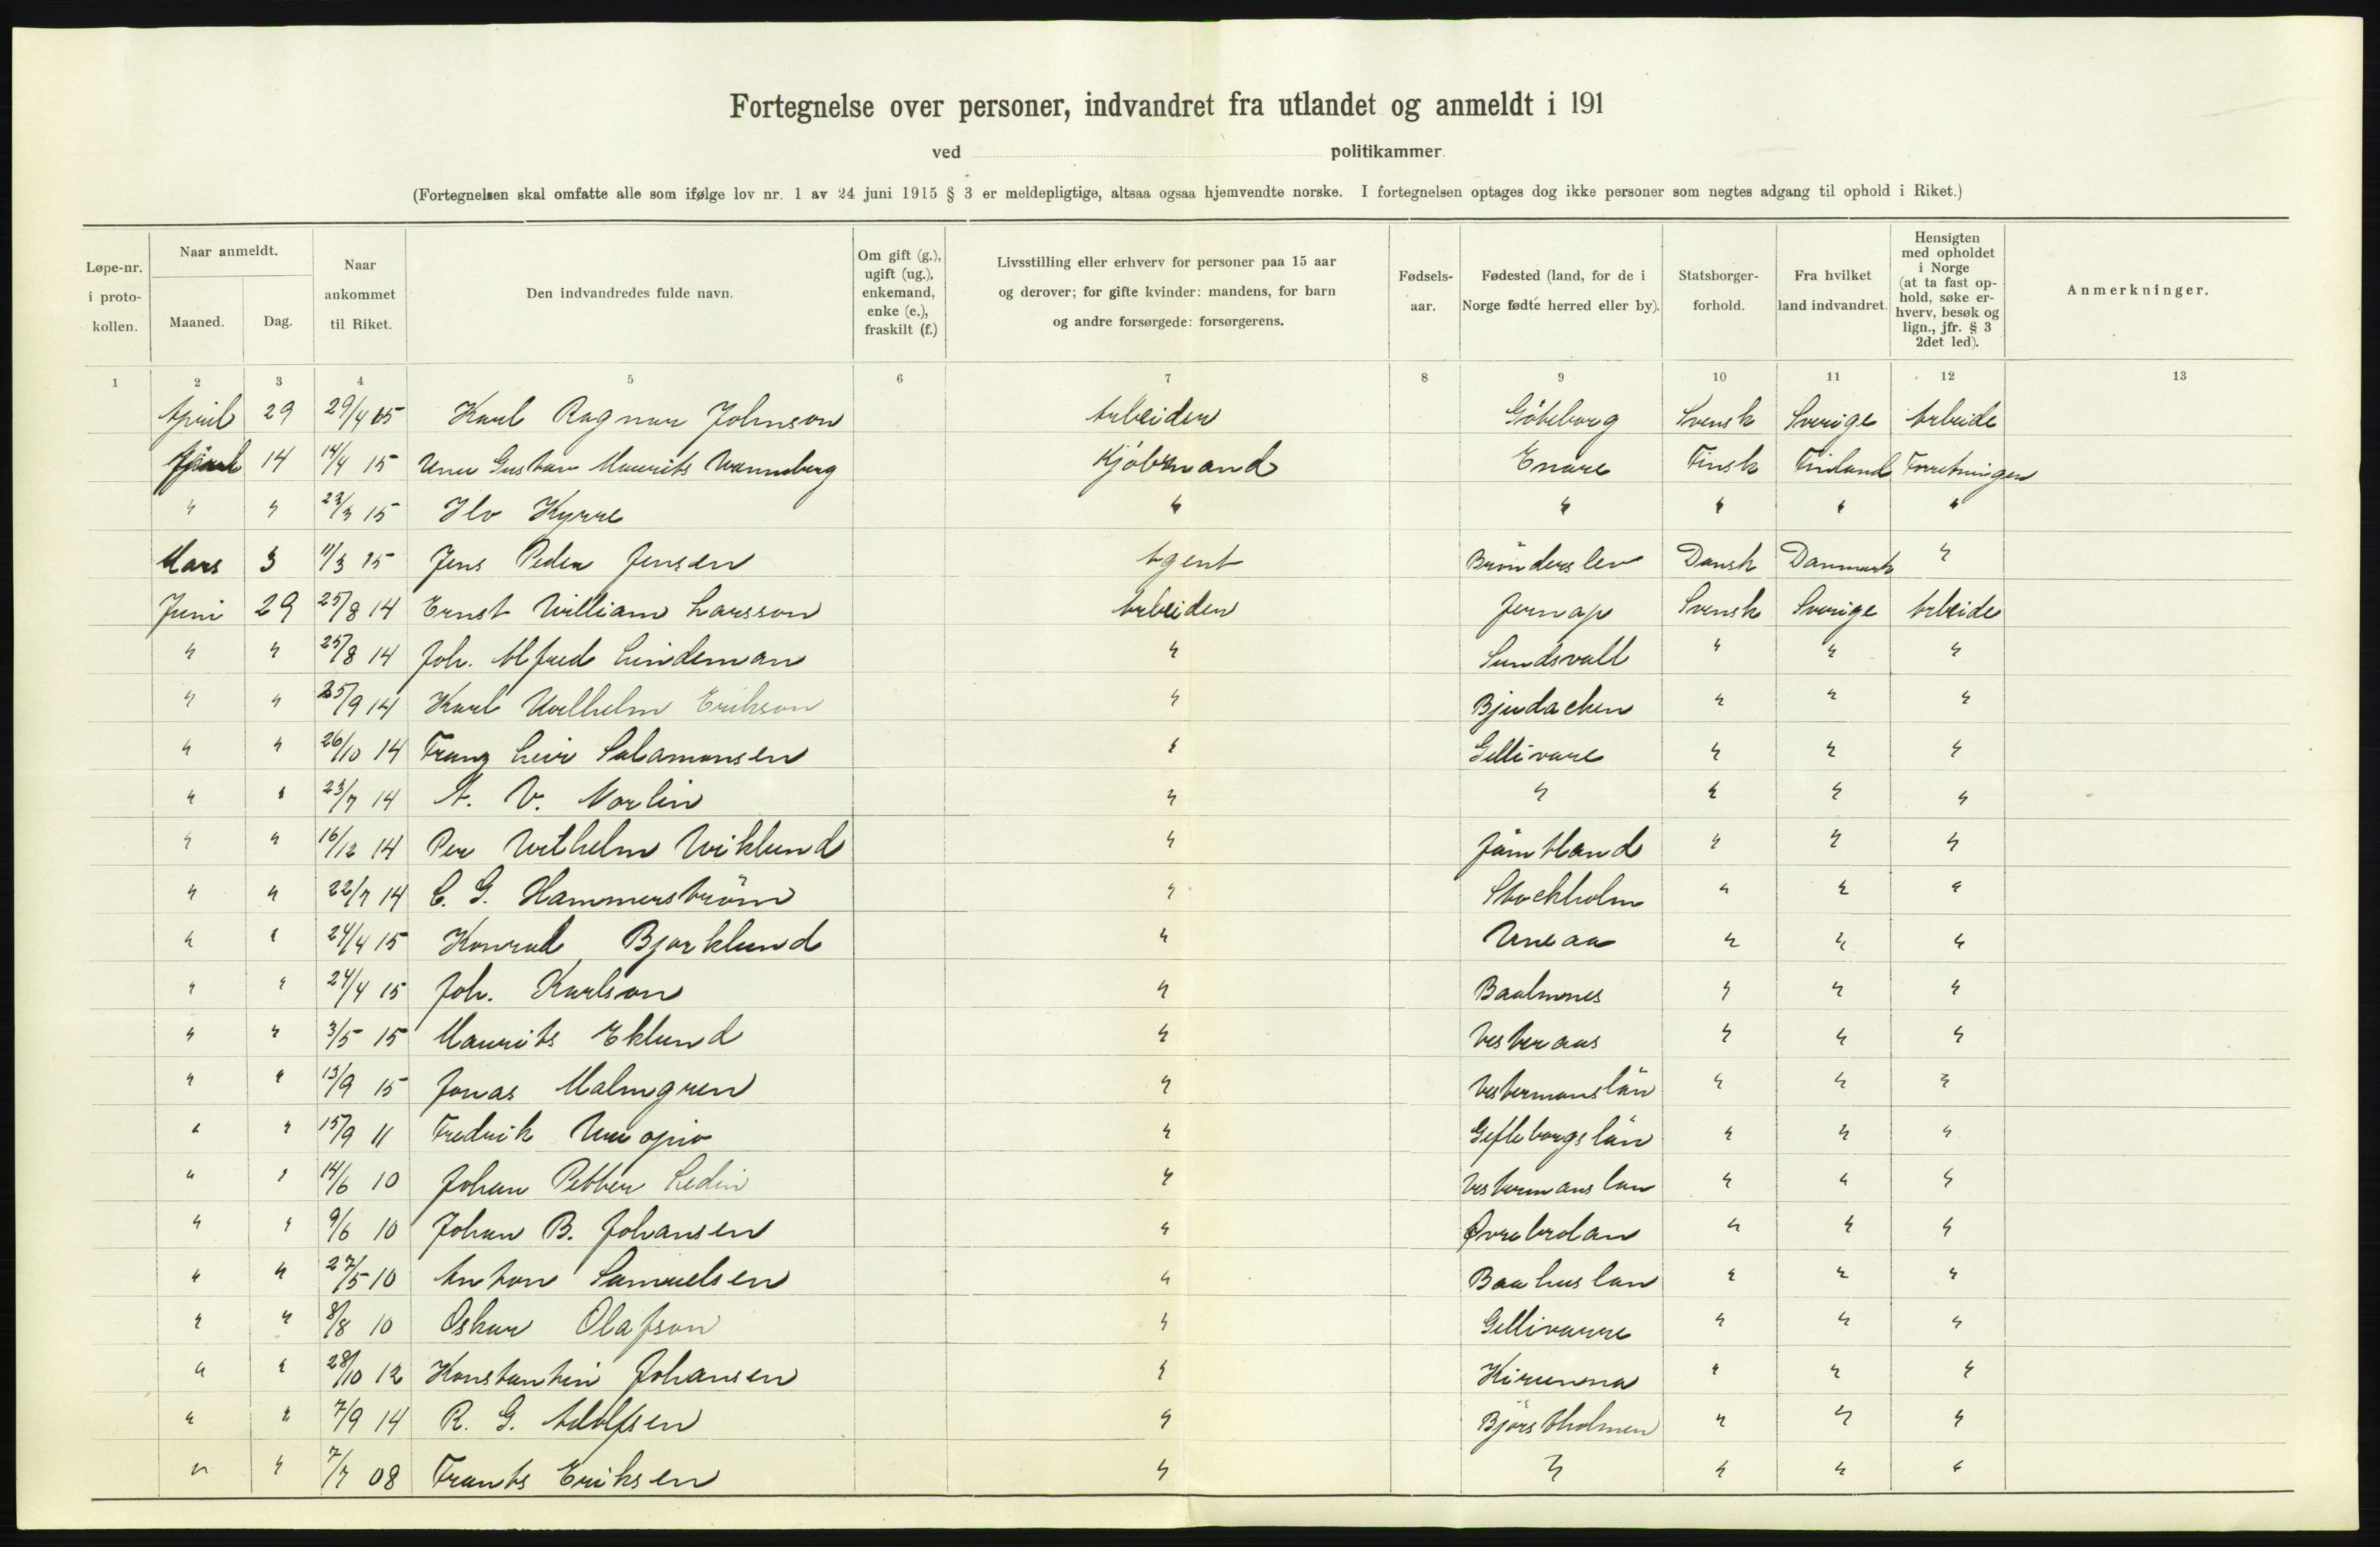 Fortegnelse over personer, indvandret fra utlandet og anmeldt i 191
ved politikammer.
(Fortegnelsen skal omfatte alle som ifølge lov nr. 1 av 24 juni 1915 § 3 er meldepligtige, altsaa ogsaa hjemvendte norske. I fortegnelsen optages dog ikke personer som negtes adgang til ophold i Riket.)
Løpe-nr. i proto- kollen.
Naar anmeldt.
Maaned.
Dag.
Naar ankommet til Riket.
Den indvandredes fulde navn.
Om gift (g.), ugift (ug.), enkemand, enke (e.), fraskilt (f.)
Livsstilling eller erhverv for personer paa 15 aar og derover; for gifte kvinder: mandens, for barn og andre forsørgede: forsørgerens.
Fødsels- aar.
Fødested (land, for de i Norge fødte herred eller by).
Statsborger- forhold.
Fra hvilket land indvandret.
Hensigten med opholdet i Norge (at ta fast op- hold, søke er- hverv, besøk og lign., jfr. § 3 2det led).
Anmerkninger.
1 2 3 4 5 6 7 8 9 10 11 12 13
April 29 29/4 15 Karl Ragnar Johnson Arbeider Göteborg Svensk Sverige Arbeide
14 14/4 15 Gustav Maurits Wanneberg Kjöbmand Enare Finsk Finland Forretninger
" " 23/3 15 Ilo Kyrre " " " " "
Mars 3 11/3 15 Jens Peder Jensen Agent Brönderslev Dansk Danmark "
Juni 29 25/8 14 Ernst William Larsson Arbeider Svensk Sverige Arbeide
" " 25/8 14 Joh. Alfred Lindeman " Sundsvall " " "
" " 25/9 14 Karl Vilhelm Erikson " " " "
" " 26/10 14 Franz Salamonsen " Gellivare " " "
" " 23/7 14 A. V. Norlin " " " " "
" " 16/12 14 Per Wilhelm Wiklund " Jämtland " " "
" " 22/7 14 C. G. Hammerström " Stockholm " " "
" " 24/4 15 Konrad Bjorklund " Umeaa " " "
" " 24/4 15 Joh. Karlson " " " "
" " 3/5 15 Maurits Eklund " Vesteraas " " "
" " 13/9 15 Jonas Malmgren " Vestermanslän " " "
" " 15/9 11 Fredrik " Gefleborgslän " " "
" " 14/6 10 Johan Petter Ledin " Vestermanslan " " "
" " 9/6 10 Johan B. Johansen " Ørebrolan " " "
" " 27/5 10 Anton Samuelsen " Baahuslan " " "
" " 8/8 10 Oskar Olafson " Gellivarre " " "
" " 28/10 12 Konstantin Johansen " Kirunna " " "
" " 7/9 14 R. G. Adolfsen " Björstholmen " " "
" " 7/7 08 Frants Eriksen " " " " "